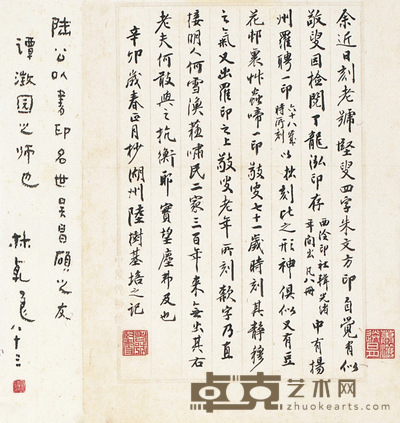 余近日刻老號堅叟四字朱文方印自覺有似
敬叟因檢閱丁龍泓印存西泠印社輯光緒年間出凡八冊中有揚
州羅聘一印六十八歲時所刻以拙刻比之形神俱似又有豆
花邨裏草蟲啼一印敬叟七十一歲時刻其靜穆
之氣又出羅印之上敬叟老年所刻款字乃直
接明人何雪漁蘇嘯民二家三百年來無出其右
老夫何敢與之抗衡耶實望塵弗及也
辛卯歲春正月抄湖州陸樹基培之記
陸公以書印名世吳昌碩之友
譚澂園之師也
林乾良八十三
卓克艺术网
www.zhuokearts.com